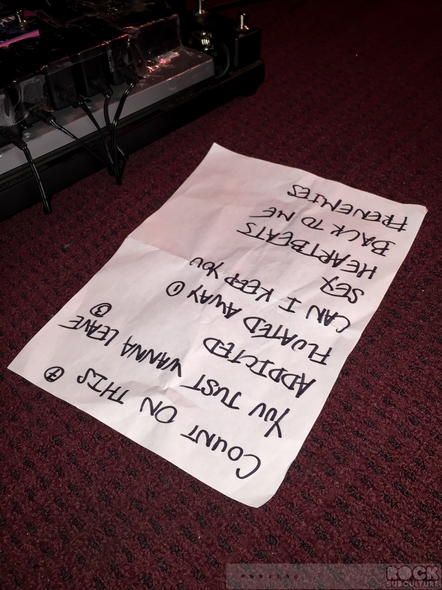 COUNT ON THIS ④
YOU JUST WANNA LEAVE ③
ADDICTED
FLOATED AWAY ①
CAN I KEEP YOU
SEX
HEARTBEATS
BACK TO ME
FRENEMIES
ROCK
SUBCULTURE